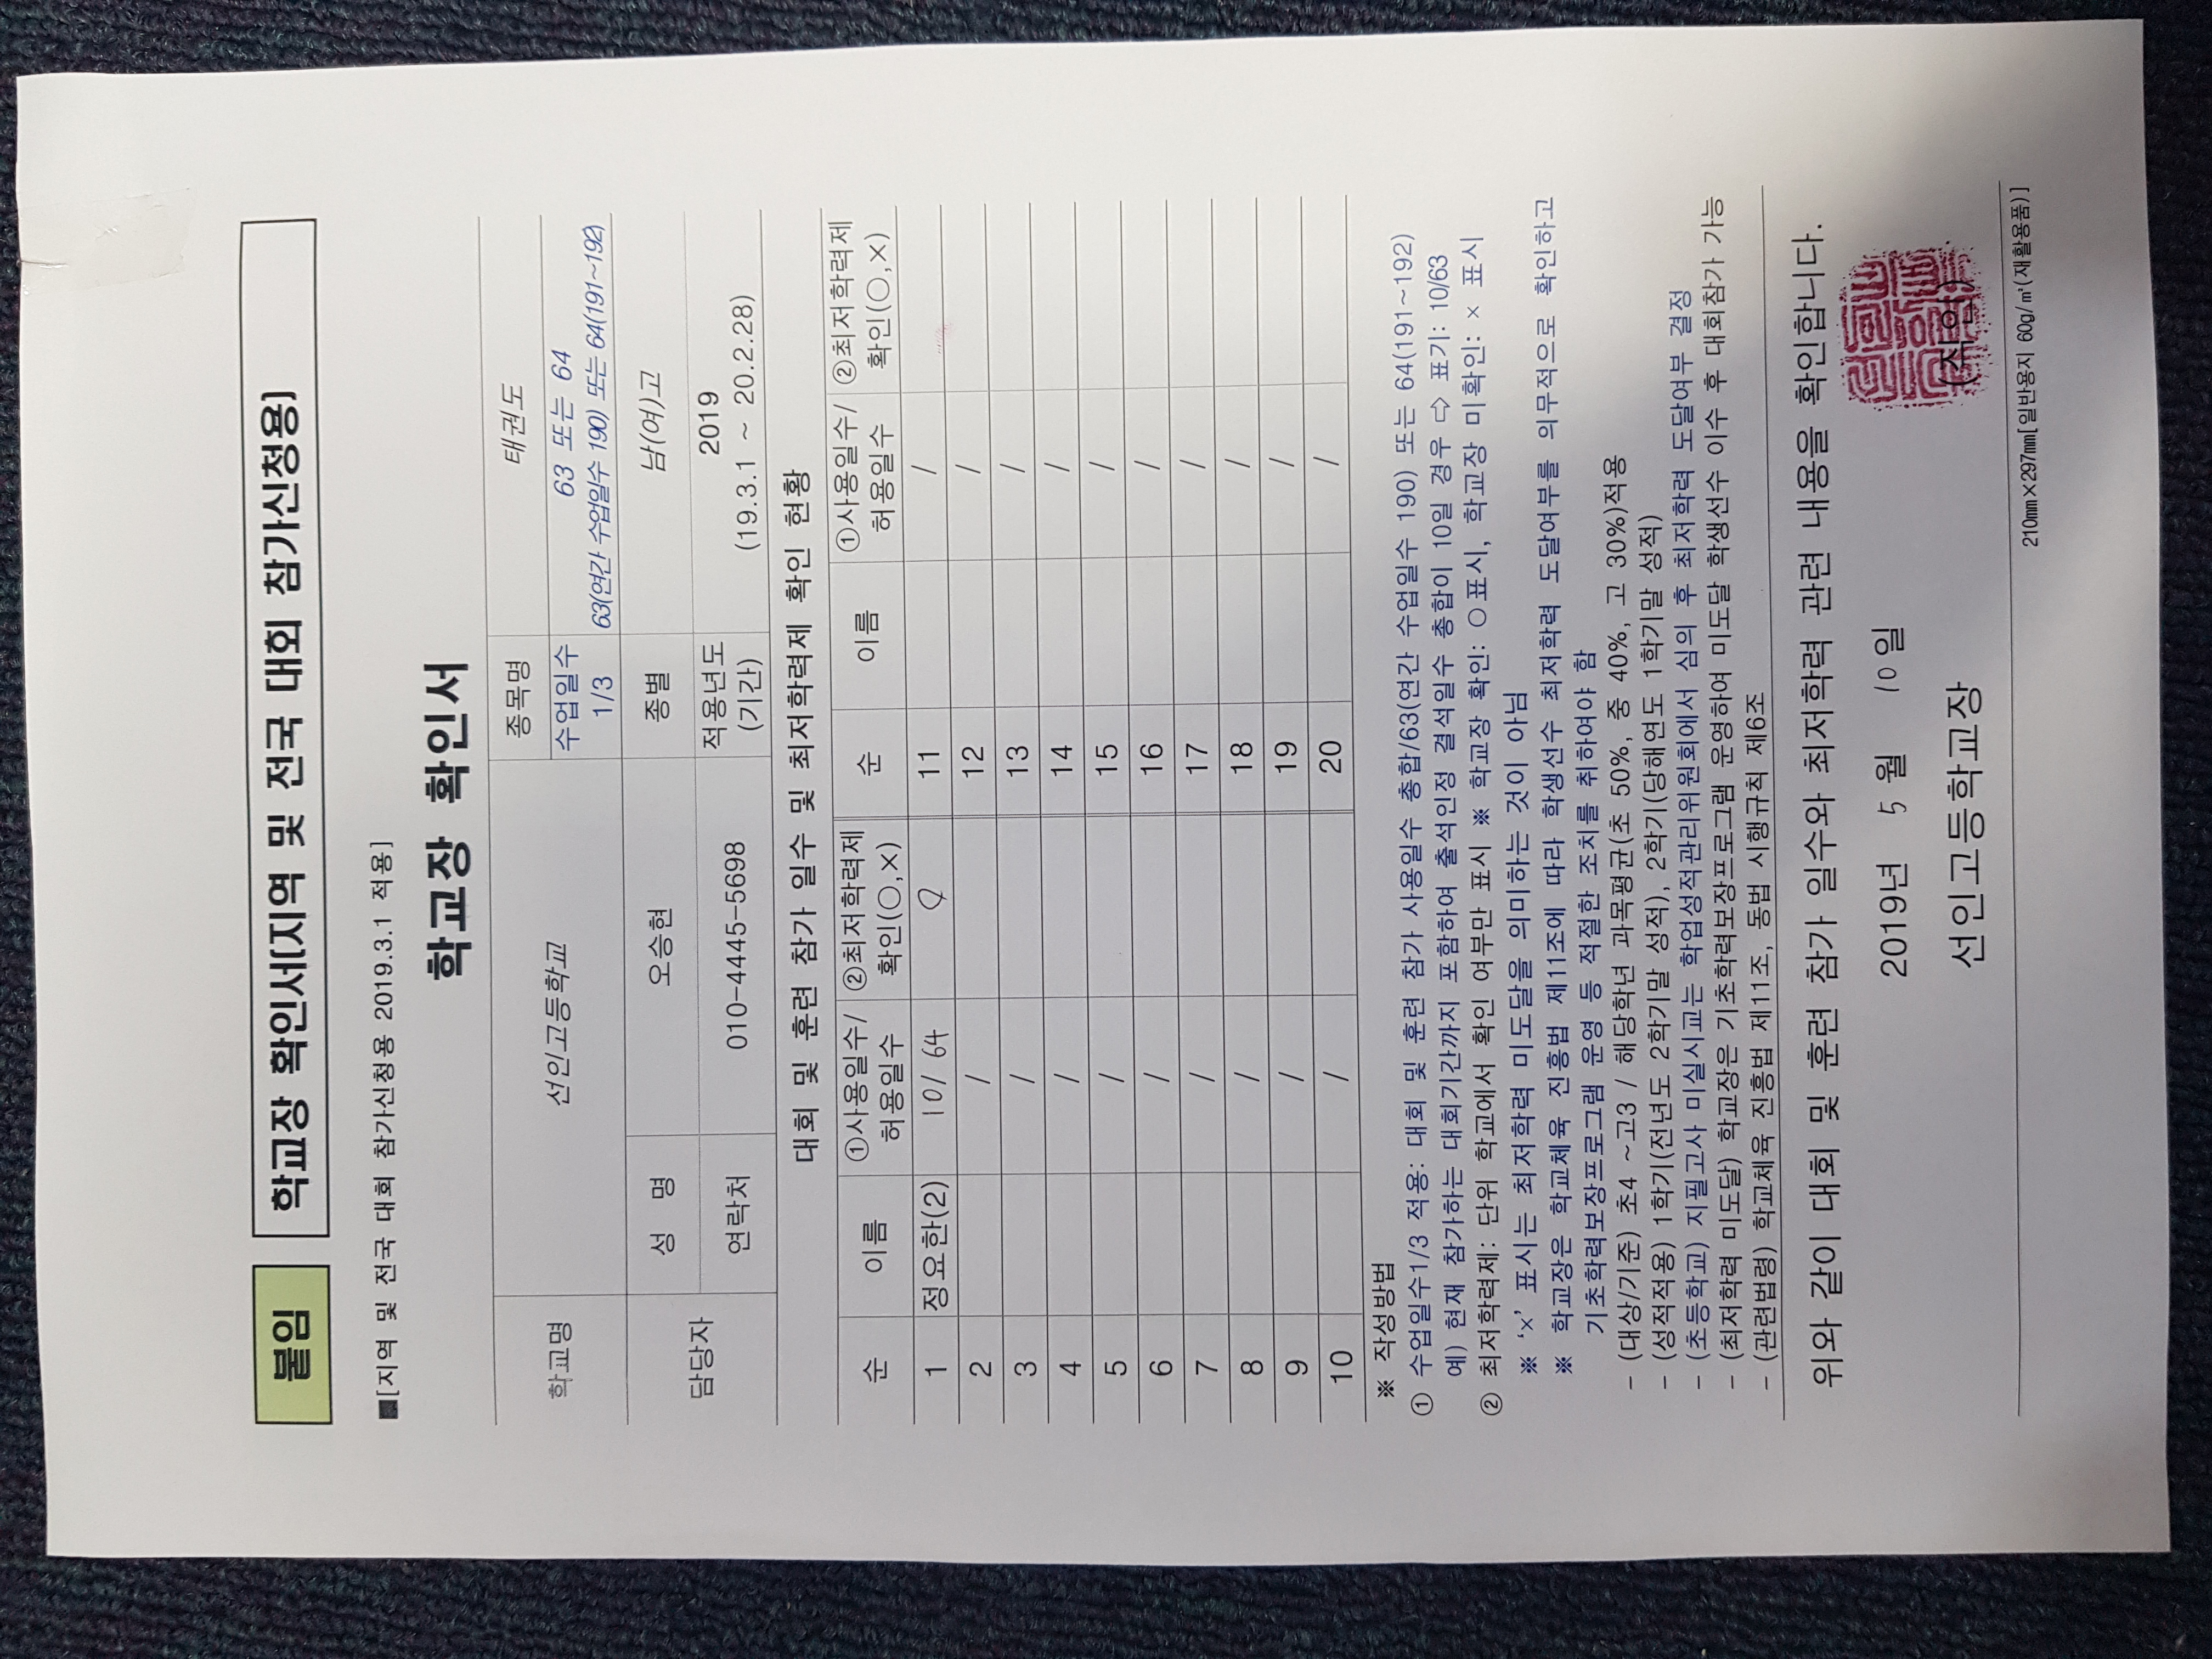 붙임
학교장 확인서(지역 및 전국 대회 참가신청용)
■[지역 및 전국 대회 참가신청용 2019.3.1 적용]
학교장 확인서
학교명 선인고등학교 종목명 태권도
수업일수 1/3 63 또는 64
63(연간 수업일수 190) 또는 64(191~192)
담당자 성 명 오승현 종별 남(여)고
연락처 010-4445-5698 적용년도 (기간) 2019
(19.3.1 ~ 20.2.28)
대회 및 훈련 참가 일수 및 최저학력제 확인 현황
순 이름 ①사용일수/허용일수 ②최저학력제 확인(○,×) 순 이름 ①사용일수/허용일수 ②최저학력제 확인(○,×)
1 정요한(2) 10/64 ○ 11 /
2 / 12 /
3 / 13 /
4 / 14 /
5 / 15 /
6 / 16 /
7 / 17 /
8 / 18 /
9 / 19 /
10 / 20 /
※ 작성방법
① 수업일수1/3 적용: 대회 및 훈련 참가 사용일수 총합/63(연간 수업일수 190) 또는 64(191~192)
예) 현재 참가하는 대회기간까지 포함하여 출석인정 결석일수 총합이 10일 경우 ⇨ 표기: 10/63
② 최저학력제: 단위 학교에서 확인 여부만 표시 ※ 학교장 확인: ○표시, 학교장 미확인: × 표시
※ ‘×’ 표시는 최저학력 미도달을 의미하는 것이 아님
※ 학교장은 학교체육 진흥법 제11조에 따라 학생선수 최저학력 도달여부를 의무적으로 확인하고
기초학력보장프로그램 운영 등 적절한 조치를 취하여야 함
- (대상/기준) 초4 ~고3 / 해당학년 과목평균(초 50%, 중 40%, 고 30%)적용
- (성적적용) 1학기(전년도 2학기말 성적), 2학기(당해연도 1학기말 성적)
- (초등학교) 지필고사 미실시교는 학업성적관리위원회에서 심의 후 최저학력 도달여부 결정
- (최저학력 미도달) 학교장은 기초학력보장프로그램 운영하여 미도달 학생선수 이수 후 대회참가 가능
- (관련법령) 학교체육 진흥법 제11조, 동법 시행규칙 제6조
위와 같이 대회 및 훈련 참가 일수와 최저학력 관련 내용을 확인합니다.
2019년 5월 10일
선인고등학교장 (직인)
210㎜×297㎜[일반용지 60g/㎡(재활용품)]